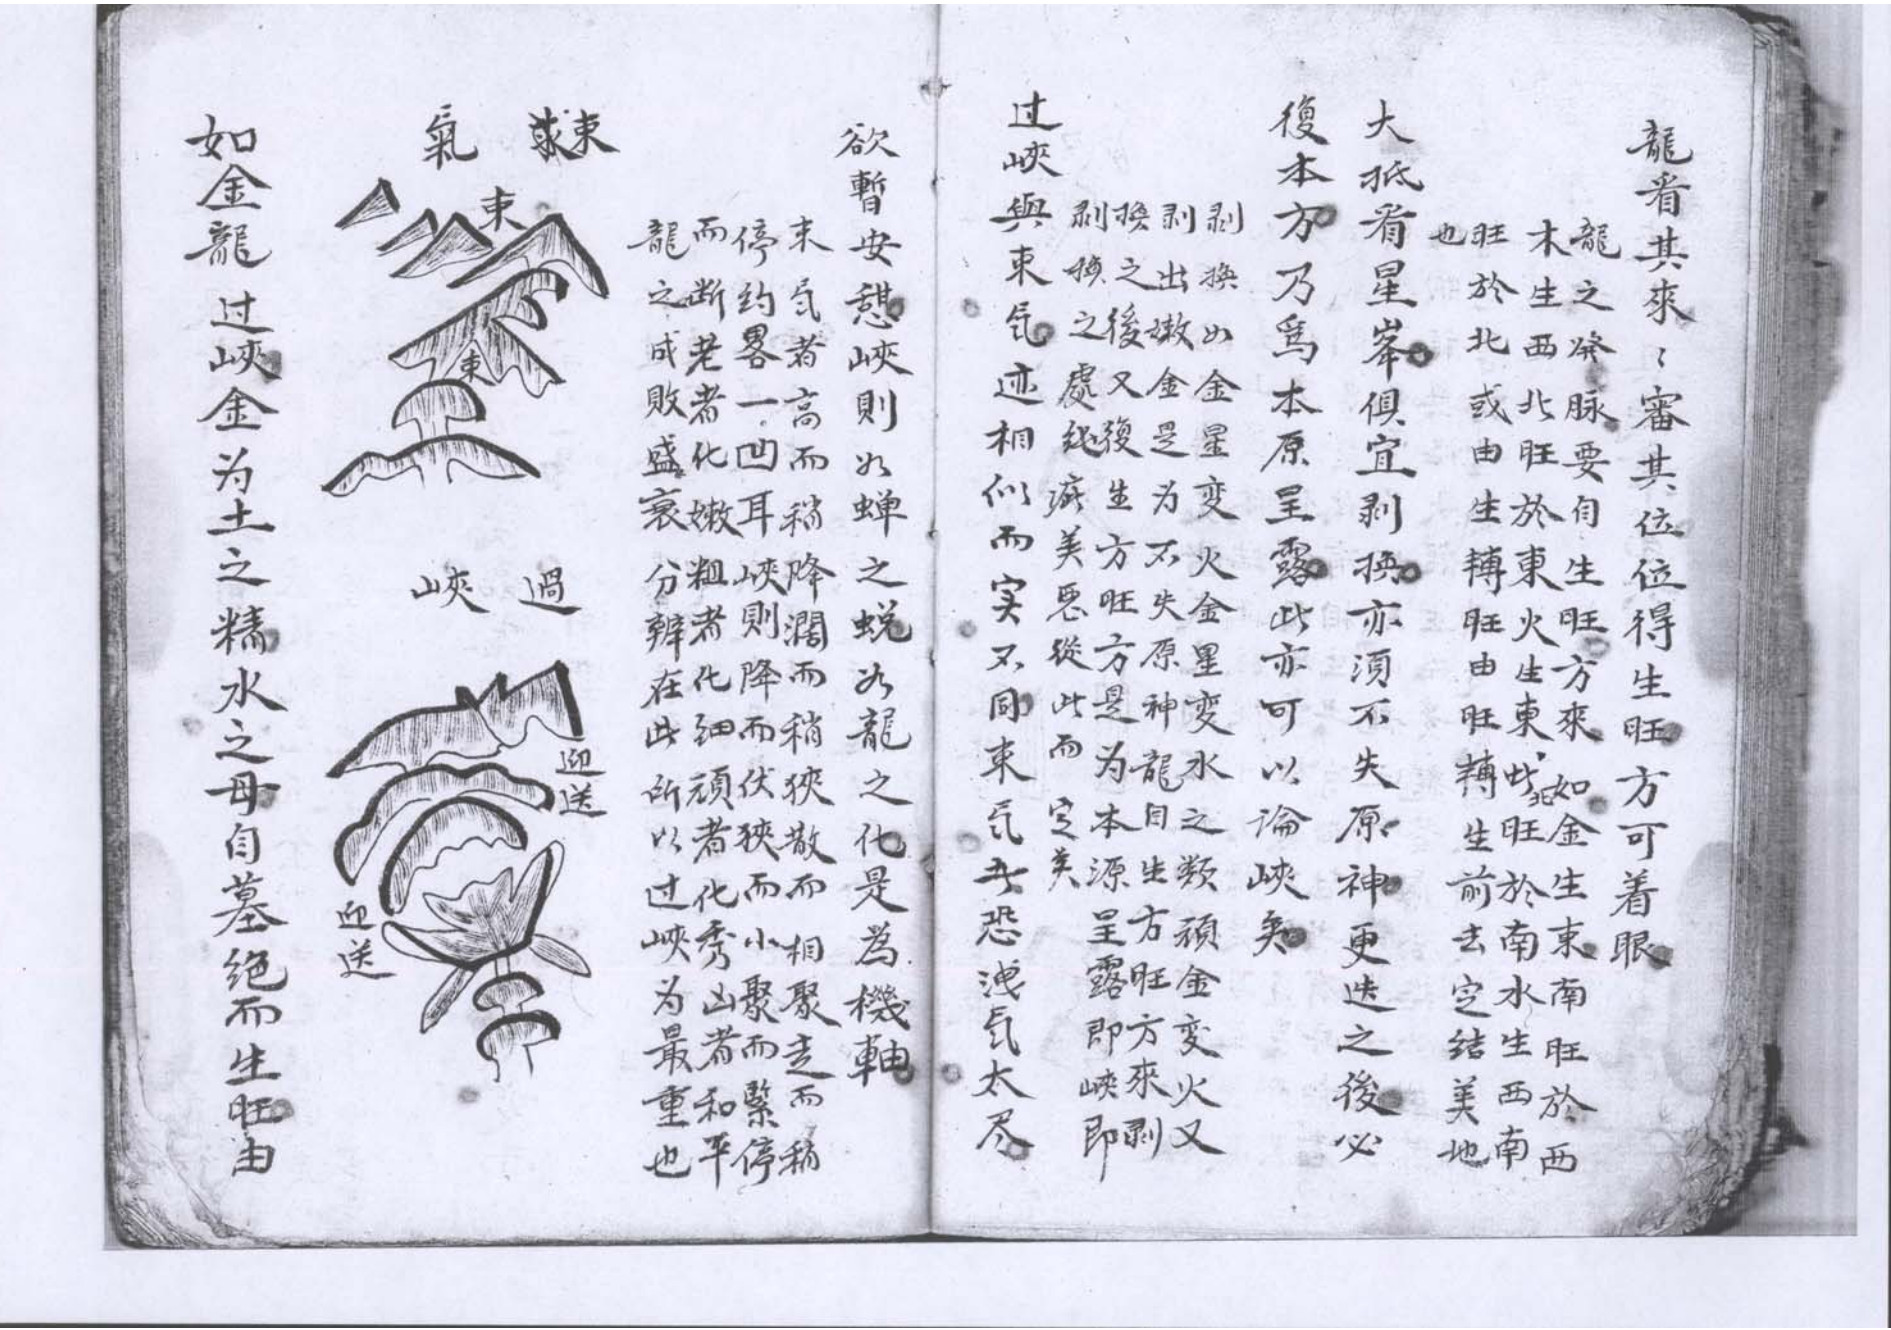 龍看其來〻審其位位得生旺方可着眼
龍之發脉要自生旺方來如金生東南旺於西
木生西北旺於東火生東北旺於南水生西南
旺於北或由生轉旺由旺轉生前去定结美地
也
大抵看星峯俱宜剥换亦須不失原神更迭之後必
復本方乃爲本原呈露此亦可以论峽矣
剥换如金星变火金星变水之类頑金变火又
剥出嫩金是为不失原神龍自生方旺方來剥
换之後又復生方旺方是为本源呈露即峽即
剥换之處純疵美恶從此而定矣
过峽與束氣迹相似而实不同束气者恐洩气太尽
欲暫安憩峽則如蝉之蜕如龍之化是爲機軸
束气者高而稍降濶而稍狹散而相聚走而稍
停约畧一凹耳峽則降而伏狹而小聚而緊停
而断老者化嫩粗者化细頑者化秀凶者和平
龍之成敗盛衰分辨在此所以过峽为最重也
束
氣
束
束
過峽
迎送
迎送
如金龍过峽金为土之精水之母自墓绝而生旺由